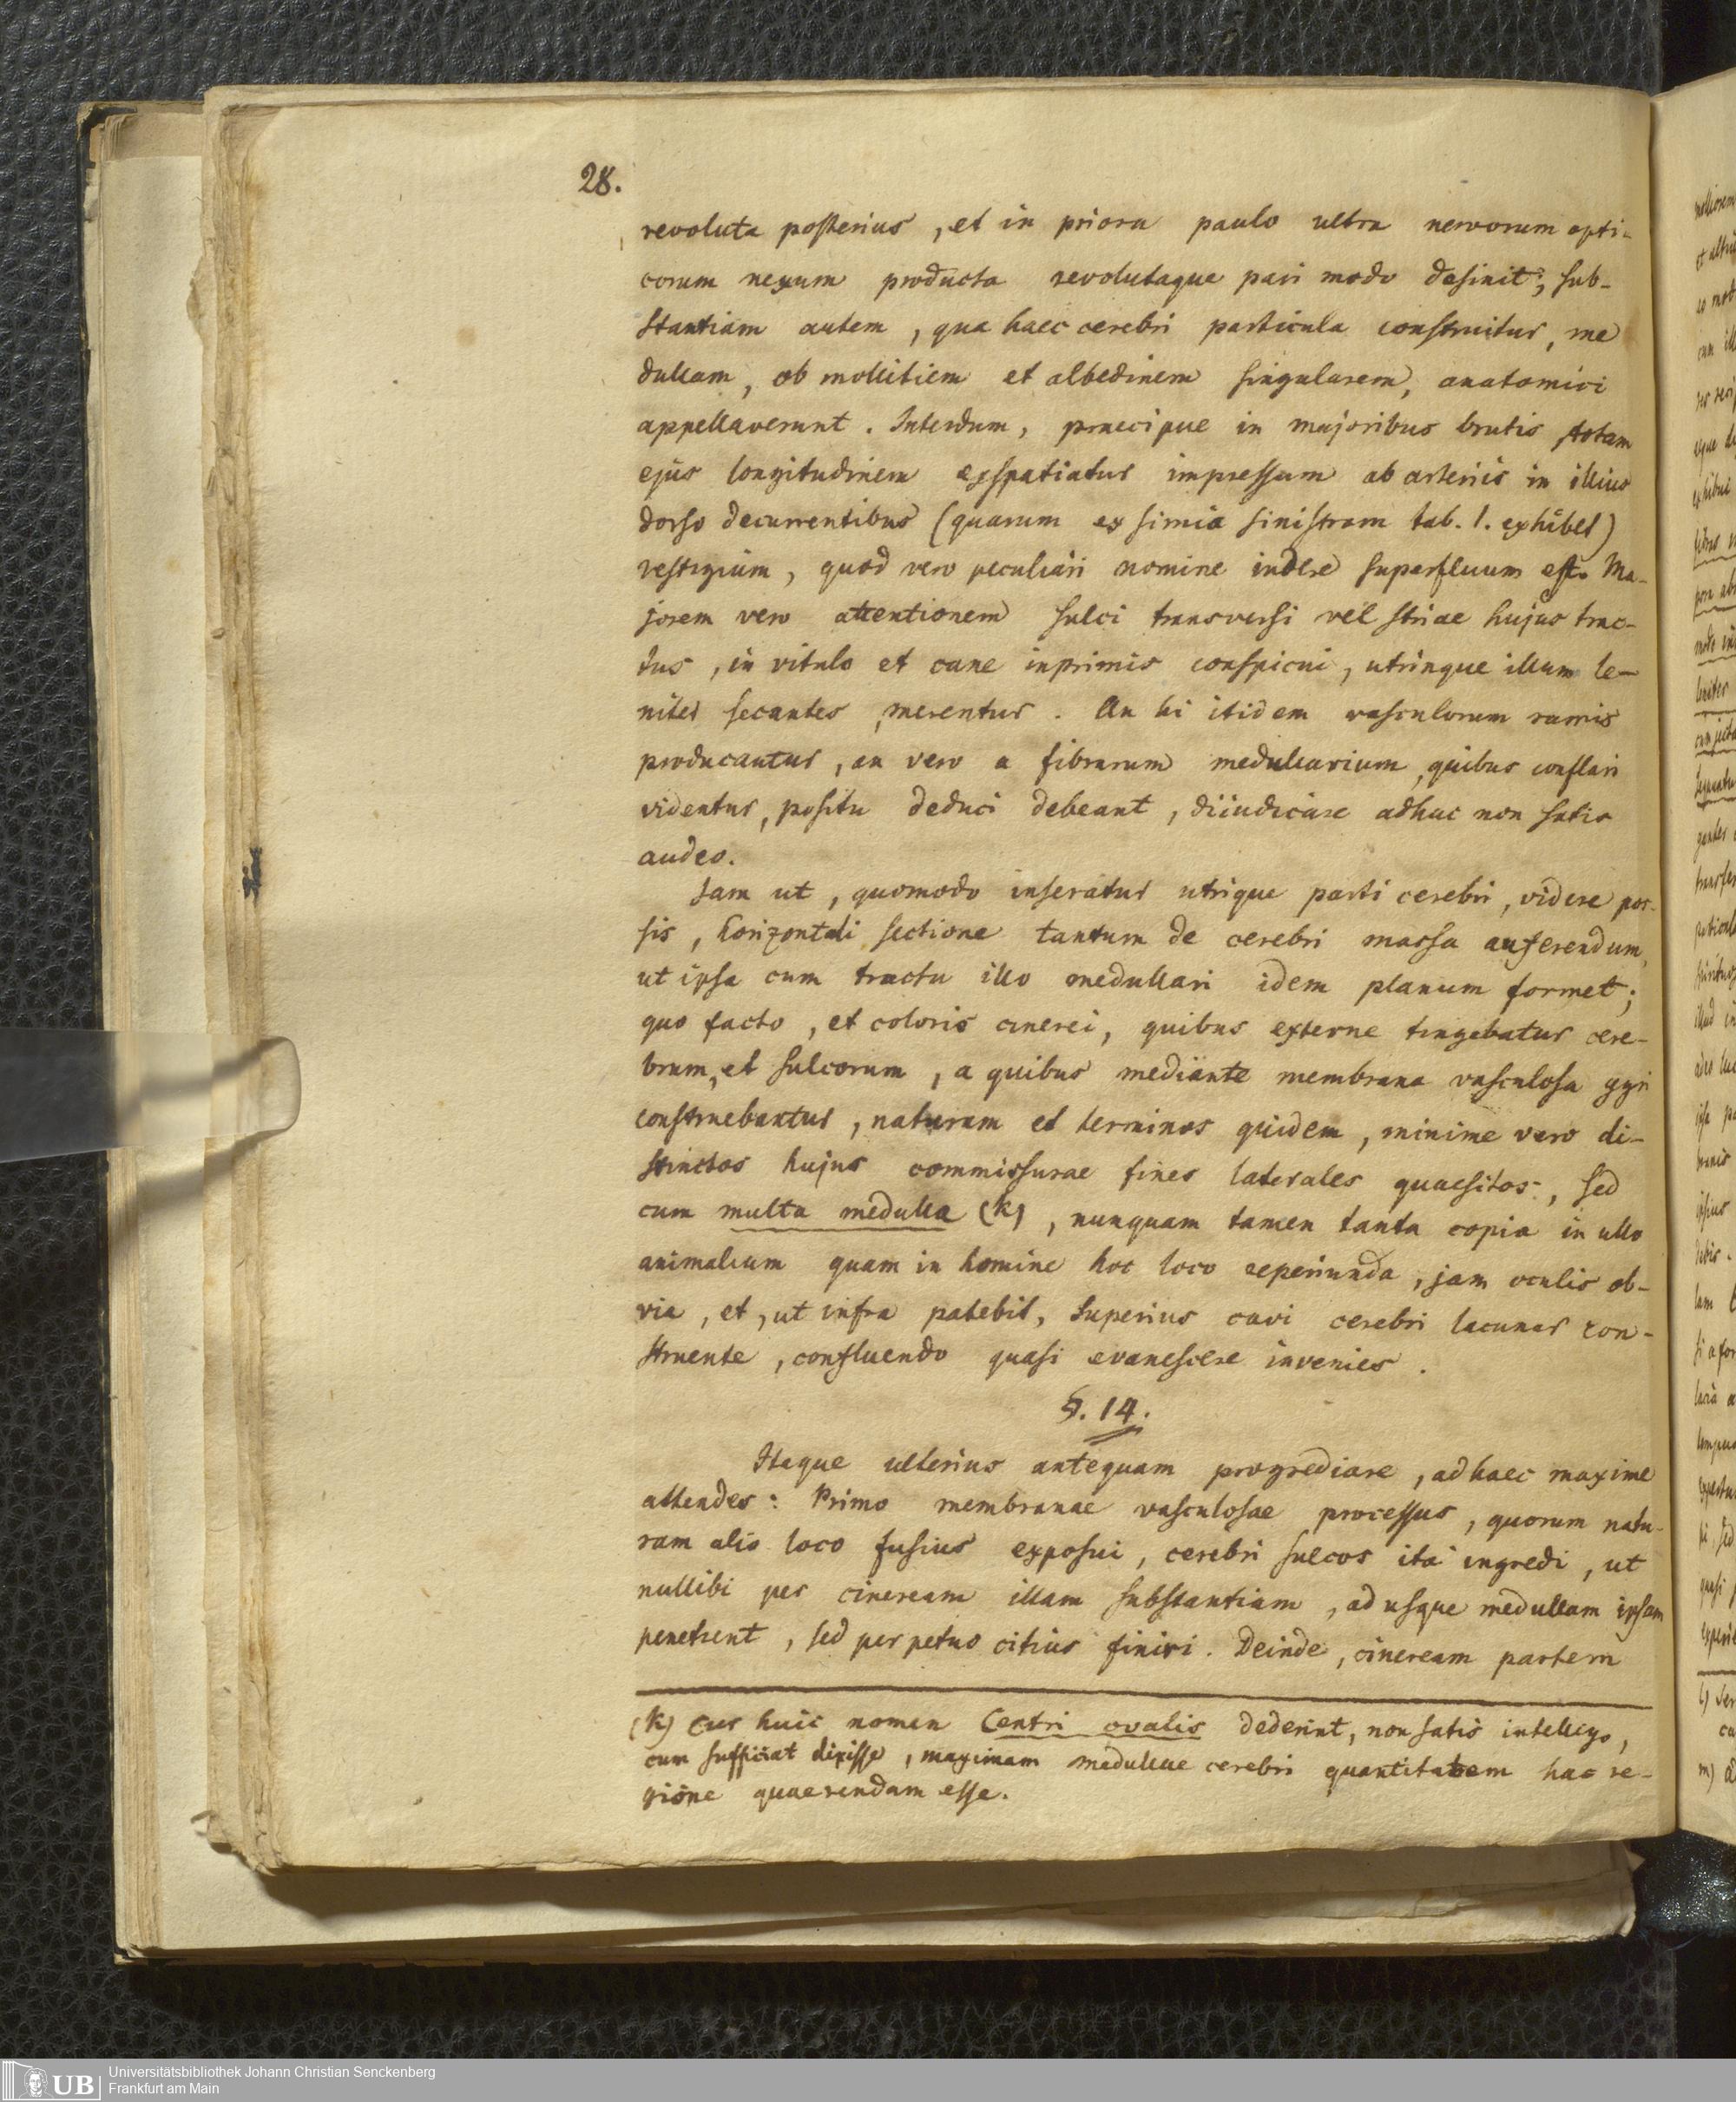 28.
revoluta posterius, et in priora paulo ultra nervorum opti-
corum nexum producta revolutaque pari modo desinit; sub-
stantiam autem, qua haec cerebri particula construitur, me
dullam, ob mollitiem et albedinem singularem, anatomici
appellaverunt. Interdum, praecipue in majoribus brutis totam
ejus longitudinem exspatiatur impressum ab arteriis in illius
dorso decurrentibus (quarum ex simia sinistram tab. I. exhibet)
vestigium, quod vero peculiari nomine indere superfluum est. Ma-
jorem vero attentionem sulci transversi vel striae hujus trac-
tus, in vitulo et cane inprimis conspicui, utrinque illum le-
niter secantes, merentur. An hi itidem vasculorum ramis
producantur, an vero a fibrarum medullarium, quibus conflari
videntur, positu deduci debeant, diiudicare adhuc non satis
audeo.
Iam ut, quomodo inseratur utrique parti cerebri, videre pos-
sis, horizontali sectione tantum de cerebri massa auferendum,
ut ipsa cum tractu illo medullari idem planum formet;
quo facto, et coloris cinerei, quibus externe tingebatur cere-
brum, et sulcorum, a quibus mediante membrana vasculosa gyri
construebantur, naturam et terminos quidem, minime vero di-
stinctos hujus commissurae fines laterales quaesitos, sed
cum multa medulla (k), nunquam tamen tanta copia in ullo
animalium quam in homine hoc loco reperiunda, jam oculis ob-
via, et, ut infra patebit, superius cavi cerebri lacunar con-
struente, confluendo quasi evanescere invenies.
§. 14.
Itaque ulterius antequam progrediare, ad haec maxime
attendes: Primo membranae vasculosae processus, quorum natu-
ram alio loco fusius exposui, cerebri sulcos ita ingredi, ut
nullibi per cineream illam substantiam, ad usque medullam ipsam
penetrent, sed perpetuo citius finiri. Deinde, cineream partem
(k) Cur huic nomen Centri ovalis dederint, non satis intelligo,
cum sufficiat dixisse, maximam medullae cerebri quantitatem hac re-
gione quaerendam esse.
UB
Universitätsbibliothek Johann Christian Senckenberg
Frankfurt am Main